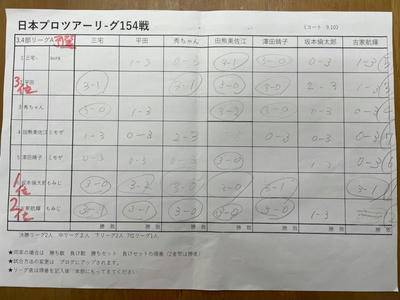 日本プロツアーリーグ154戦
(コート 9.10)
3.4部リーグA 予選 三宅 平田 秀ちゃん 田熊美佐江 澤田晴子 坂本倫太郎 古家航輝
1 三宅 1-3 0-3 3-1 3-0 0-3 1-3
3位 平田 3-1 3-1 3-0 2-3 1-3
3 秀ちゃん 3-0 1-3 3-0 0-3 0-3
4 田熊美佐江 ミモザ 1-3 0-3 2-3 0-3 0-3 0-3
5 澤田晴子 ミモザ 0-3 0-3 3-0
1位 坂本倫太郎 もみじ 3-0 3-2 3-0 3-0 3-1 3-1
2位 古家航輝 もみじ 3-1 3-1 3-0 3-0 3-0 1-3
勝 敗 勝 敗 勝 敗 勝 敗 勝 敗 勝 敗 勝 敗
決勝リーグ2人 中リーグ2人 下リーグ2人 7位リーグ1人
★同率の場合は 勝ち数 負け数 勝ちセット 負けセットの順番 (2者間は勝者)
★試合方法の変更は ブログにアップされます。
★リーグ表は順番を記入後 本部にもってきてください